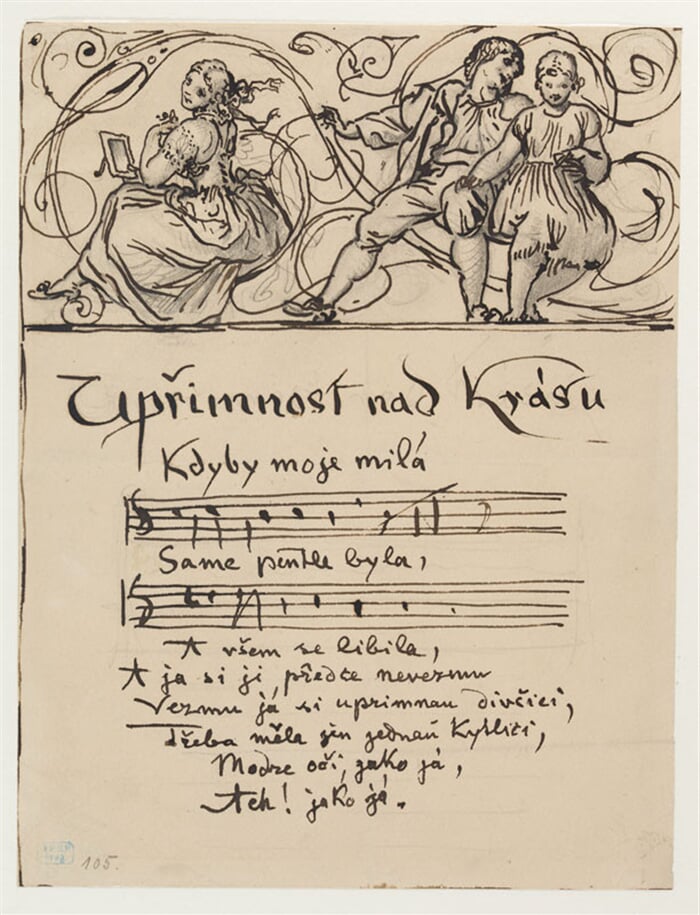 Upřimnost nad Krásu
Kdyby moje milá
Same pentle byla,
A všem se libila,
A ja si ji předce nevezmu
Vezmu já si uprimnau divčici,
třeba měla jen jednau Kytlici,
Modre oči, jako já,
Ach! jako já.
105.